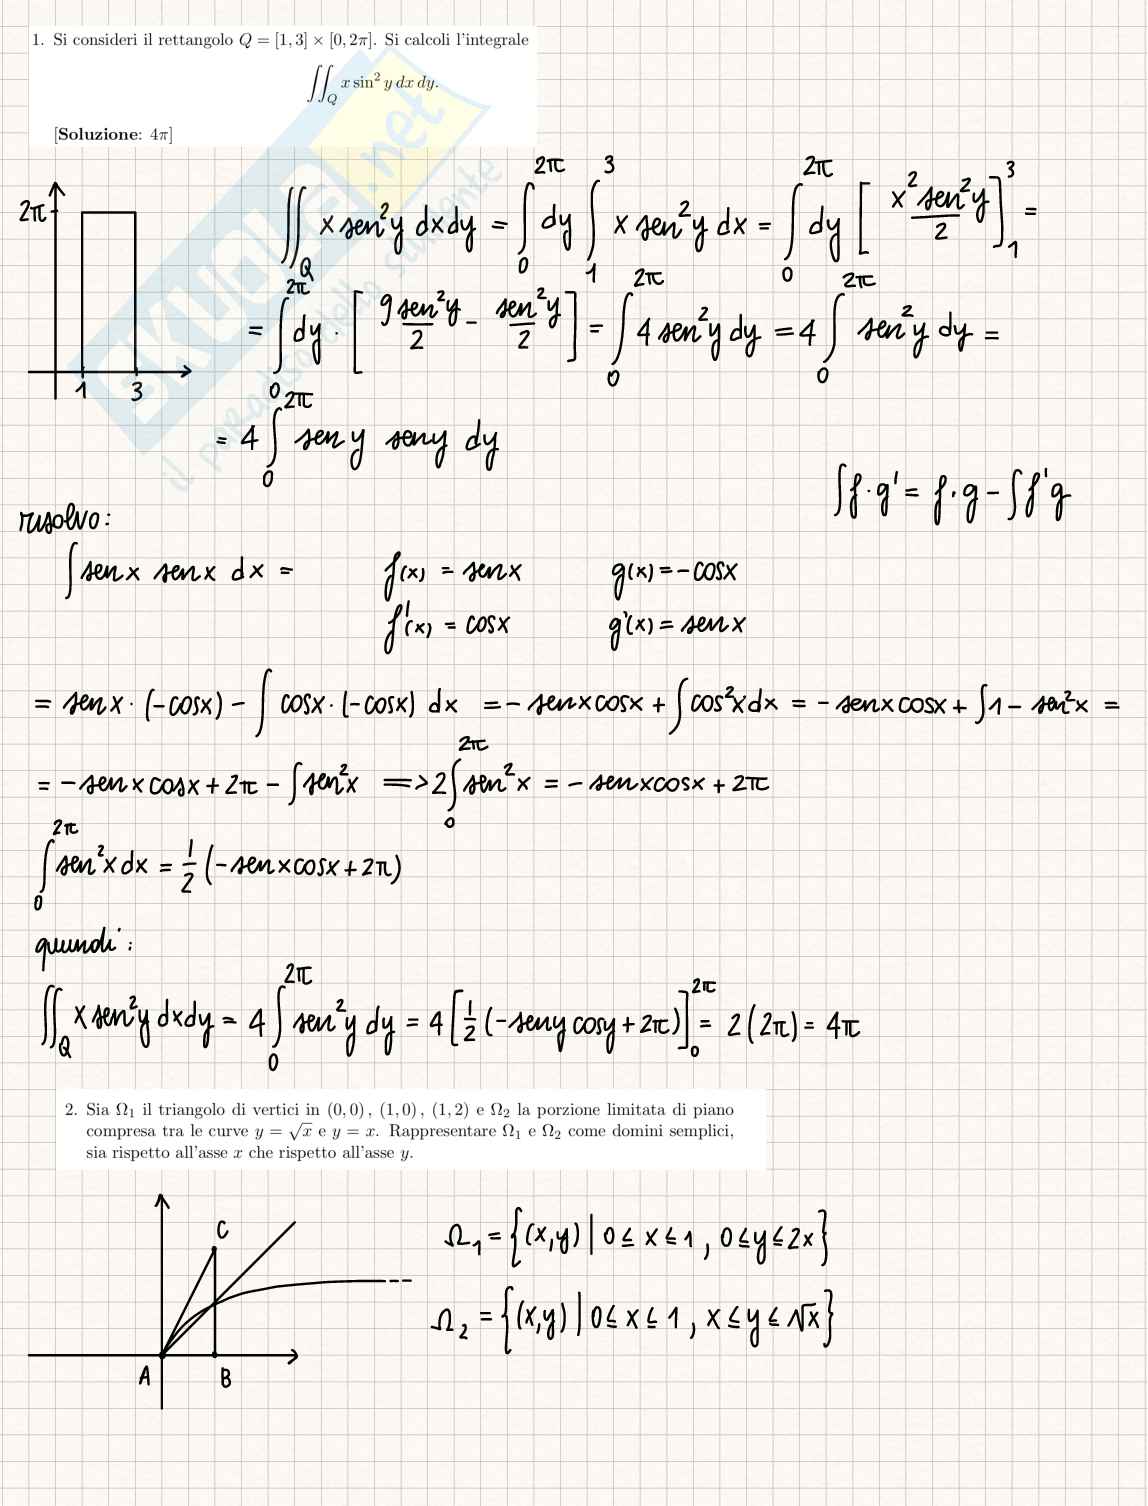 1. Si consideri il rettangolo Q = [1, 3] × [0, 2π]. Si calcoli l'integrale
∬_Q x sin² y dx dy.
[Soluzione: 4π]
SKUOLA.net
il paradiso dello studente
2π
1 3
∬_Q x sen²y dxdy = ∫_0^{2π} dy ∫_1^3 x sen²y dx = ∫_0^{2π} dy [x² sen²y / 2]_1^3 =
= ∫_0^{2π} dy · [9 sen²y / 2 - sen²y / 2] = ∫_0^{2π} 4 sen²y dy = 4 ∫_0^{2π} sen²y dy =
= 4 ∫_0^{2π} sen y sen y dy
∫f·g' = f·g - ∫f'g
risolvo:
∫sen x sen x dx = f(x) = sen x g(x) = -cos x
f'(x) = cos x g'(x) = sen x
= sen x · (-cos x) - ∫ cos x · (-cos x) dx = - sen x cos x + ∫cos²x dx = - sen x cos x + ∫1 - sen²x =
= - sen x cos x + 2π - ∫sen²x => 2∫_0^{2π} sen²x = - sen x cos x + 2π
∫_0^{2π} sen²x dx = 1/2 (- sen x cos x + 2π)
quindi:
∬_Q x sen²y dxdy = 4 ∫_0^{2π} sen²y dy = 4 [1/2 (- sen y cos y + 2π)]_0^{2π} = 2(2π) = 4π
2. Sia Ω₁ il triangolo di vertici in (0, 0) , (1, 0) , (1, 2) e Ω₂ la porzione limitata di piano
compresa tra le curve y = √x e y = x. Rappresentare Ω₁ e Ω₂ come domini semplici,
sia rispetto all'asse x che rispetto all'asse y.
C
A B
Ω₁ = {(x,y) | 0 ≤ x ≤ 1 , 0 ≤ y ≤ 2x}
Ω₂ = {(x,y) | 0 ≤ x ≤ 1 , x ≤ y ≤ √x}